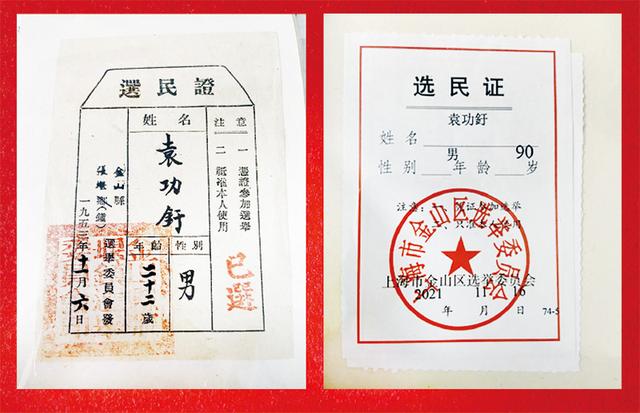 選民證
注意
一 憑證參加選舉
二 祇准本人使用
已選
姓名
袁功釪
性別
男
年齡
二十二歲
金山縣
張堰(鎮)
選舉委員會發
一九五三年十一月六日
选民证
袁功釪
姓名
男 90
性别 年龄 岁
注意： 证参加选举
只准 用
上海市金山区选举委员会
上海市金山区选举委员会
2021 11 16
年 月 日
74-5